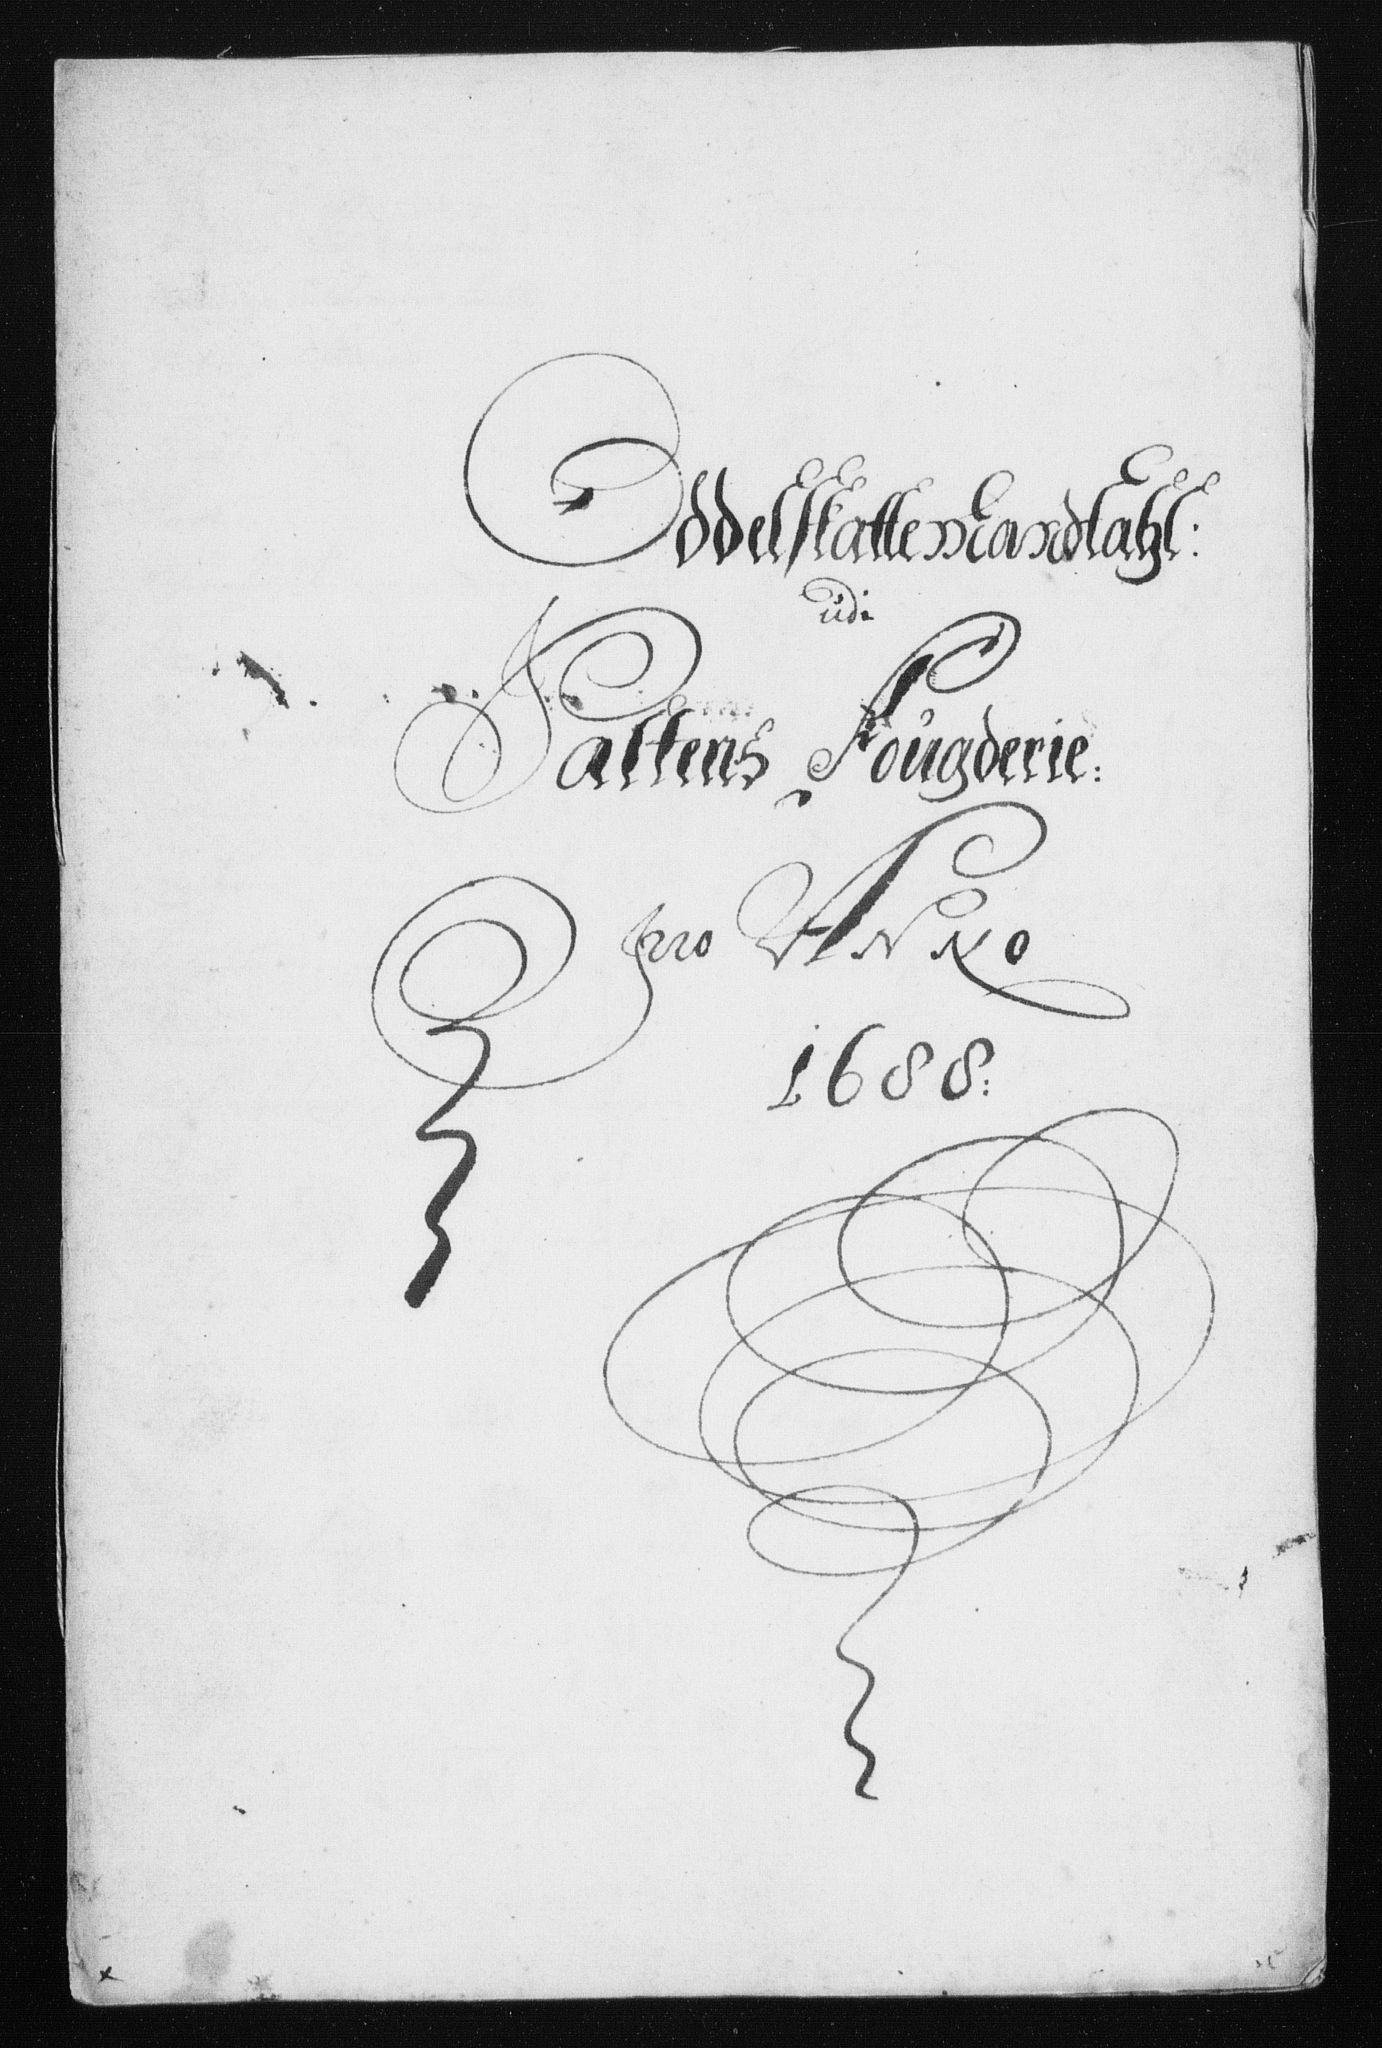 Oddelskattemandtahl:
udi
Saltens Fougderie:
pro Anno
1688: